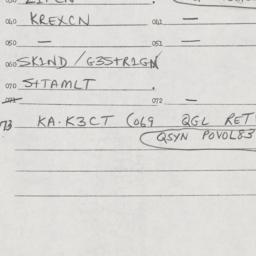 040 KREXCN 041 —
050 — 051 —
060 SKIND / G3STRIGN
070 S+TAMLT .
071 072 —
73 KA·K3CT (069 QGL RET
QSYN POVOL83